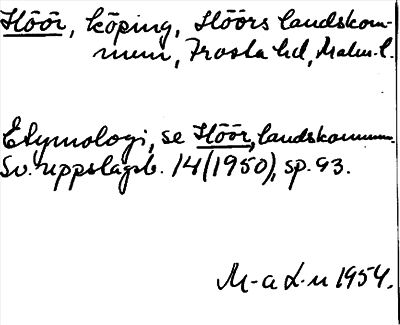 Höör, köping, Höörs landskom-
mun, Frosta hd, Malm. l.
Etymologi, se Höör, landskommun.
Sv. uppslagsb. 14 (1950), sp. 93.
M-a L-n 1954.